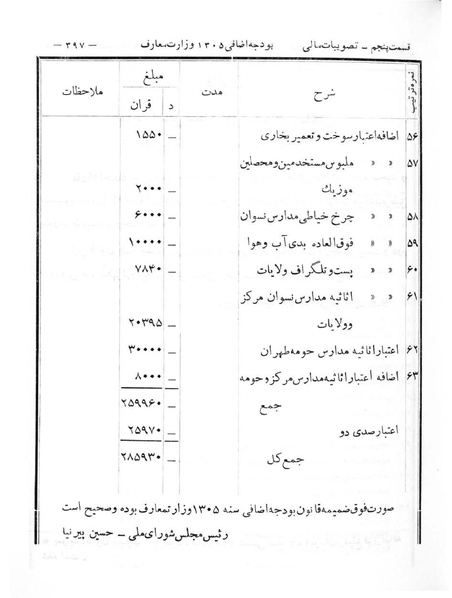 قسمت پنجم - تصویبات مالی بودجه اضافی ۱۳۰۵ وزارت معارف — ۳۹۷ —
نمره ترتیب شرح مدت مبلغ ملاحظات
د قران
۵۶ اضافه اعتبار سوخت و تعمیر بخاری — ۱۵۵۰
۵۷ » » ملبوس مستخدمین و محصلین
موزیک — ۲۰۰۰
۵۸ » » چرخ خیاطی مدارس نسوان — ۶۰۰۰
۵۹ » » فوق العاده بدی آب و هوا — ۱۰۰۰۰
۶۰ » » پست و تلگراف ولایات — ۷۸۴۰
۶۱ » » اثاثیه مدارس نسوان مرکز
وولایات — ۲۰۳۹۵
۶۲ اعتبار اثاثیه مدارس حومه طهران — ۳۰۰۰۰
۶۳ اضافه اعتبار اثاثیه مدارس مرکز و حومه — ۸۰۰۰
جمع — ۲۵۹۹۶۰
اعتبار صدی دو — ۲۵۹۷۰
جمع کل — ۲۸۵۹۳۰
صورت فوق ضمیمه قانون بودجه اضافی سنه ۱۳۰۵ وزارت معارف بوده و صحیح است
رئیس مجلس شورای ملی - حسین پیرنیا